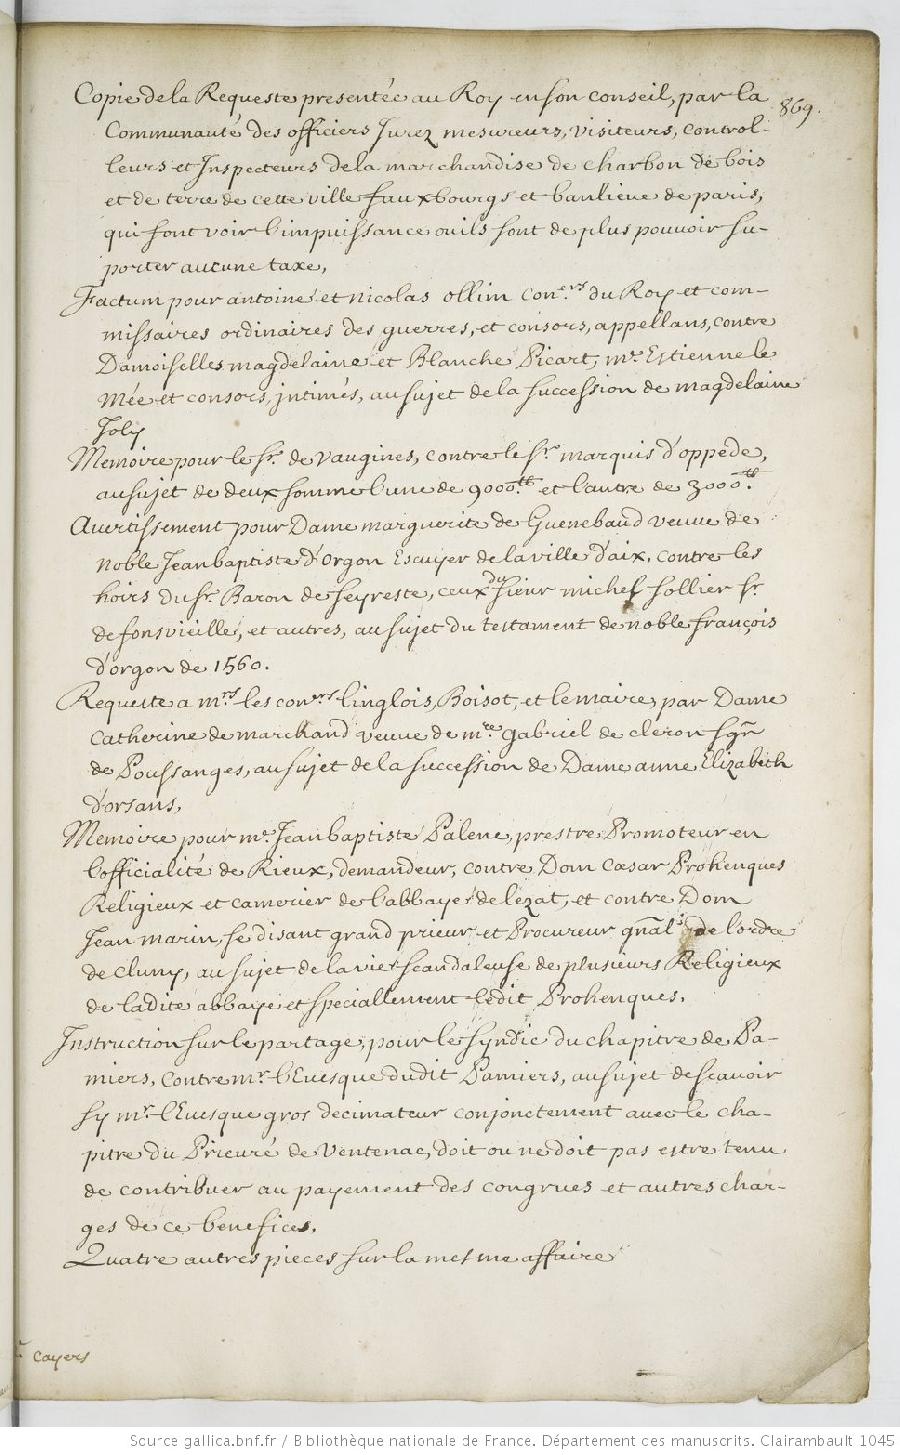 869.
Copie de la Requeste presentée au Roy en son conseil, par la
Communauté des officiers Jurez mesureurs, visiteurs, control-
leurs et Inspecteurs de la marchandise de charbon de bois
et de terre de cette ville fauxbourgs et banlieue de paris,
qui font voir l'impuissance ou ils sont de plus pouvoir su-
porter aucune taxe,
Factum pour antoine et nicolas ollim con.ers du Roy et com-
missaires ordinaires des guerres, et consors, appellans, contre
Damoiselles magdelaine et Blanche Picart, me. Estienne le
Mée et consors, intimés, au sujet de la succession de magdelaine
Joly
Memoire pour le sr. de vaugines, contre le sr. marquis d'oppede,
au sujet de deux somme l'une de 9000.tt et l'autre de 3000.tt
Avertissement pour Dame marguerite de Guenebaud veuve de
noble Jean baptiste d'orgon Escuyer de la ville d'aix, contre les
hoirs du sr. Baron de seyreste, ceux du sieur michel sollier sr.
de fonsvieille, et autres, au sujet du testament de noble françois
d'orgon de 1560.
Requeste a mrs les coners linglois, Boisot, et le maire, par Dame
Catherine de marchand veuve de mre gabriel de cleron sgr
de Poussanges, au sujet de la succession de Dame anne Elizabeth
d'orsans,
Memoire pour me. Jean baptiste Palene, prestre Promoteur en
l'officialité de Rieux, demandeur, contre Dom Casar Prohenques
Religieux et camerier de l'abbaye de lezat, et contre Dom
Jean marin, se disant grand prieur et Procureur gnal de l'ordre
de cluny, au sujet de la vie scandaleuse de plusieurs Religieux
de ladite abbaye et speciallement ledit Prohenques.
Instruction sur le partage, pour le syndic du chapitre de Pa-
miers, contre mr. l'Evesque dudit Pamiers, au sujet de scavoir
sy mr. l'Evesque gros decimateur conjointement avec le cha-
pitre du Prieuré de Ventenac, doit ou ne doit pas estre tenu
de contribuer au payement des congrues et autres char-
ges de ce benefices.
Quatre autres pieces sur la mesme affaire
cayers
Source gallica.bnf.fr / Bibliothèque nationale de France. Département des manuscrits. Clairambault 1045